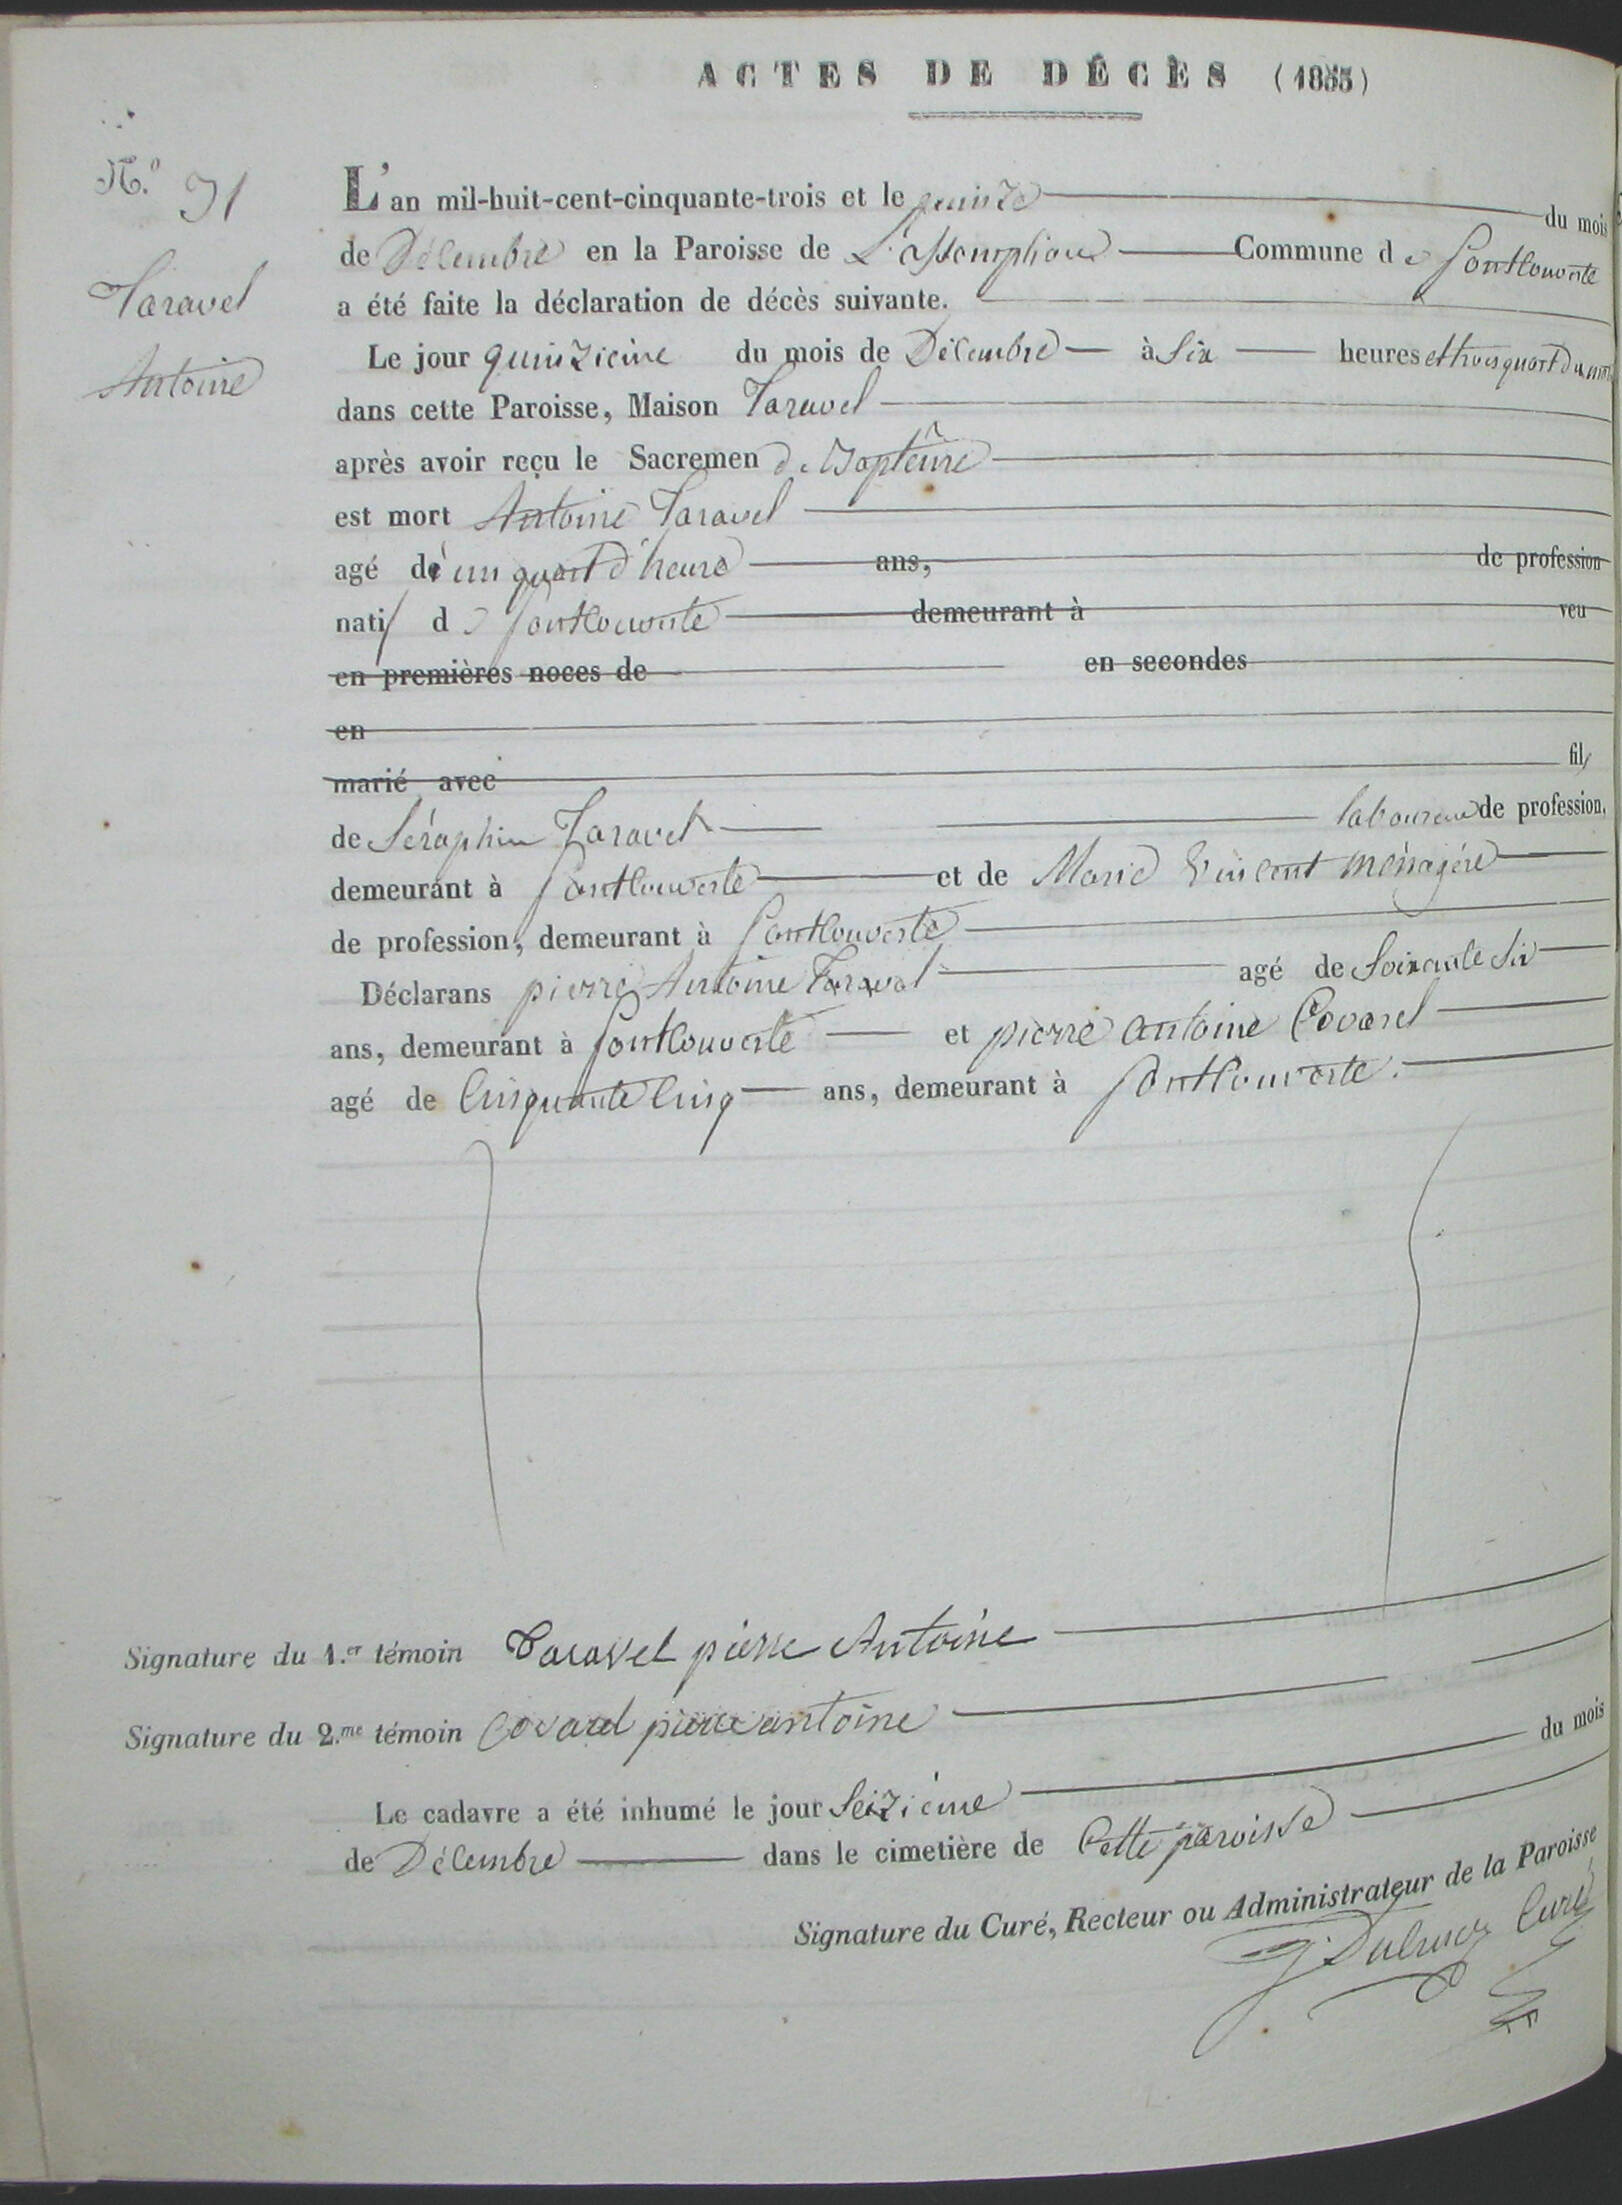 ACTES DE DÉCÈS (1853)
N.º 31
Taravel
Antoine
L'an mil-huit-cent-cinquante-trois et le quinze du mois
de Décembre en la Paroisse de L'Assomption Commune de Fontcouverte
a été faite la déclaration de décès suivante.
Le jour quinzieme du mois de Décembre à Six heures et trois quart du matin
dans cette Paroisse, Maison Taravel
après avoir reçu le Sacremen de Baptême
est mort Antoine Taravel
agé d'un quart d'heure ans, de profession
natif de Fontcouverte demeurant à veu
en premières noces de en secondes
en
marié avec fils
de Séraphin Taravel laboureur de profession,
demeurant à Fontcouverte et de Marie Vincent ménagére
de profession, demeurant à Fontcouverte
Déclarans pierre Antoine Taravel agé de Soixante Six
ans, demeurant à Fontcouverte et pierre antoine Covarel
agé de Cinquante Cinq ans, demeurant à Fontcouverte.
Signature du 1.er témoin Taravel pierre Antoine
Signature du 2.me témoin Covarel pierre antoine
Le cadavre a été inhumé le jour Seizième du mois
de Décembre dans le cimetière de Cette paroisse
Signature du Curé, Recteur ou Administrateur de la Paroisse
Curé